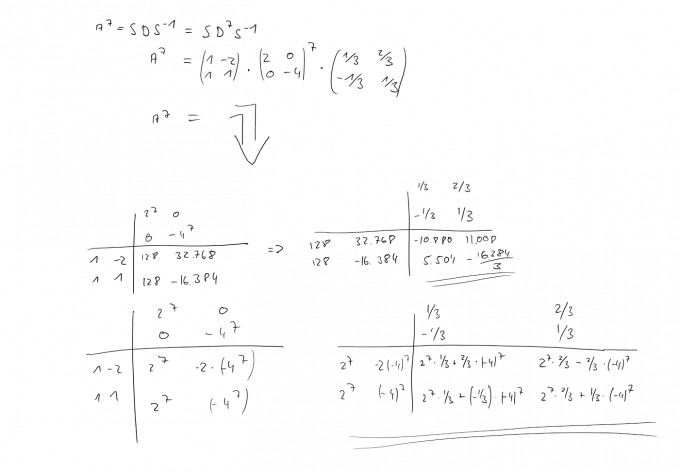 A⁷ = SDS⁻¹ = SD⁷S⁻¹
A⁷ = (1 -2 / 1 1) · (2 0 / 0 -4)⁷ · (1/3 2/3 / -1/3 1/3)
A⁷ =
2⁷ 0
0 -4⁷
1 -2 | 128 32.768
1 1 | 128 -16.384
=>
1/3 2/3
-1/3 1/3
128 32.768 | -10.880 11.008
128 -16.384 | 5.504 -16384/3
2⁷ 0
0 -4⁷
1 -2 | 2⁷ -2·(-4⁷)
1 1 | 2⁷ (-4⁷)
1/3 2/3
-1/3 1/3
2⁷ -2(-4)⁷ | 2⁷·1/3+2/3·(-4)⁷ 2⁷·2/3-2/3·(-4)⁷
2⁷ (-4)⁷ | 2⁷·1/3+(-1/3)·(-4)⁷ 2⁷·2/3+1/3·(-4)⁷